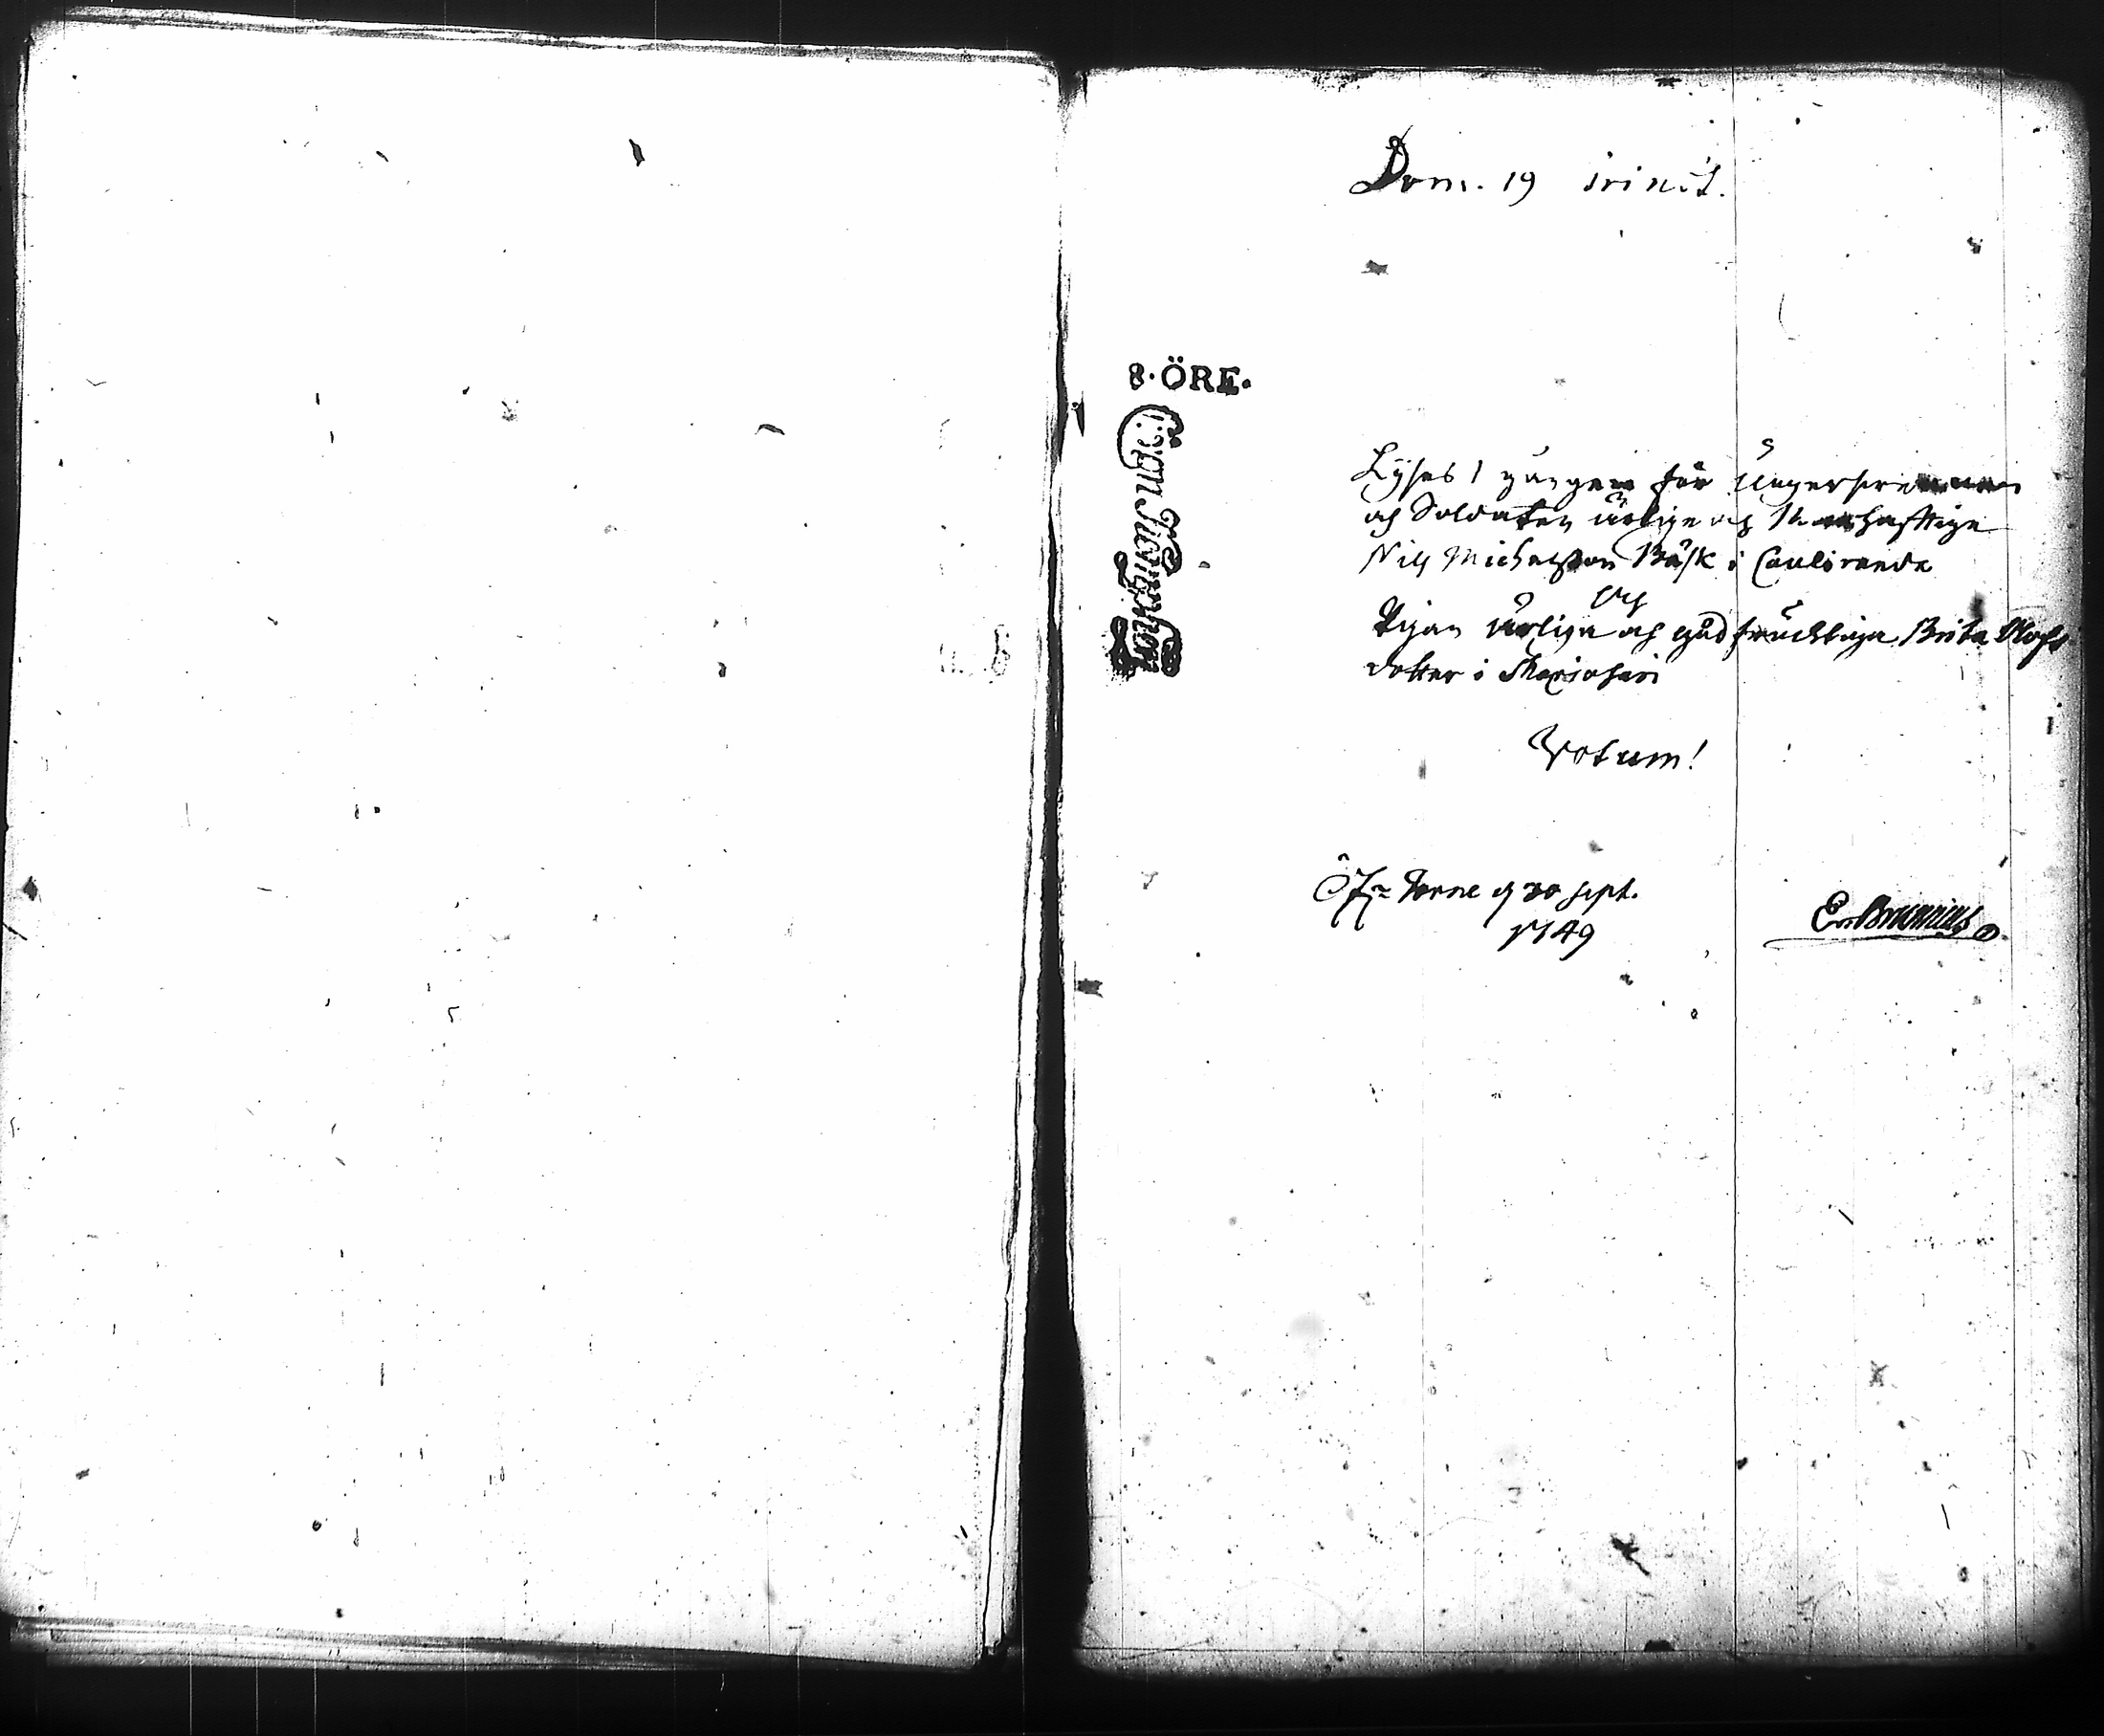 Dom. 19 trinit.
8·ÖRE.
Lyses 1 gången för Ungersvennen
och Soldaten ärlige och Manhafftige
Nils Michelsson Bäsk i Cauliranda
och
Pigan ärliga och gudfruchtiga Brita Olofs
dotter i
Votum!
Öfr Torne d 30 sept.
1749
Er. Brunnius